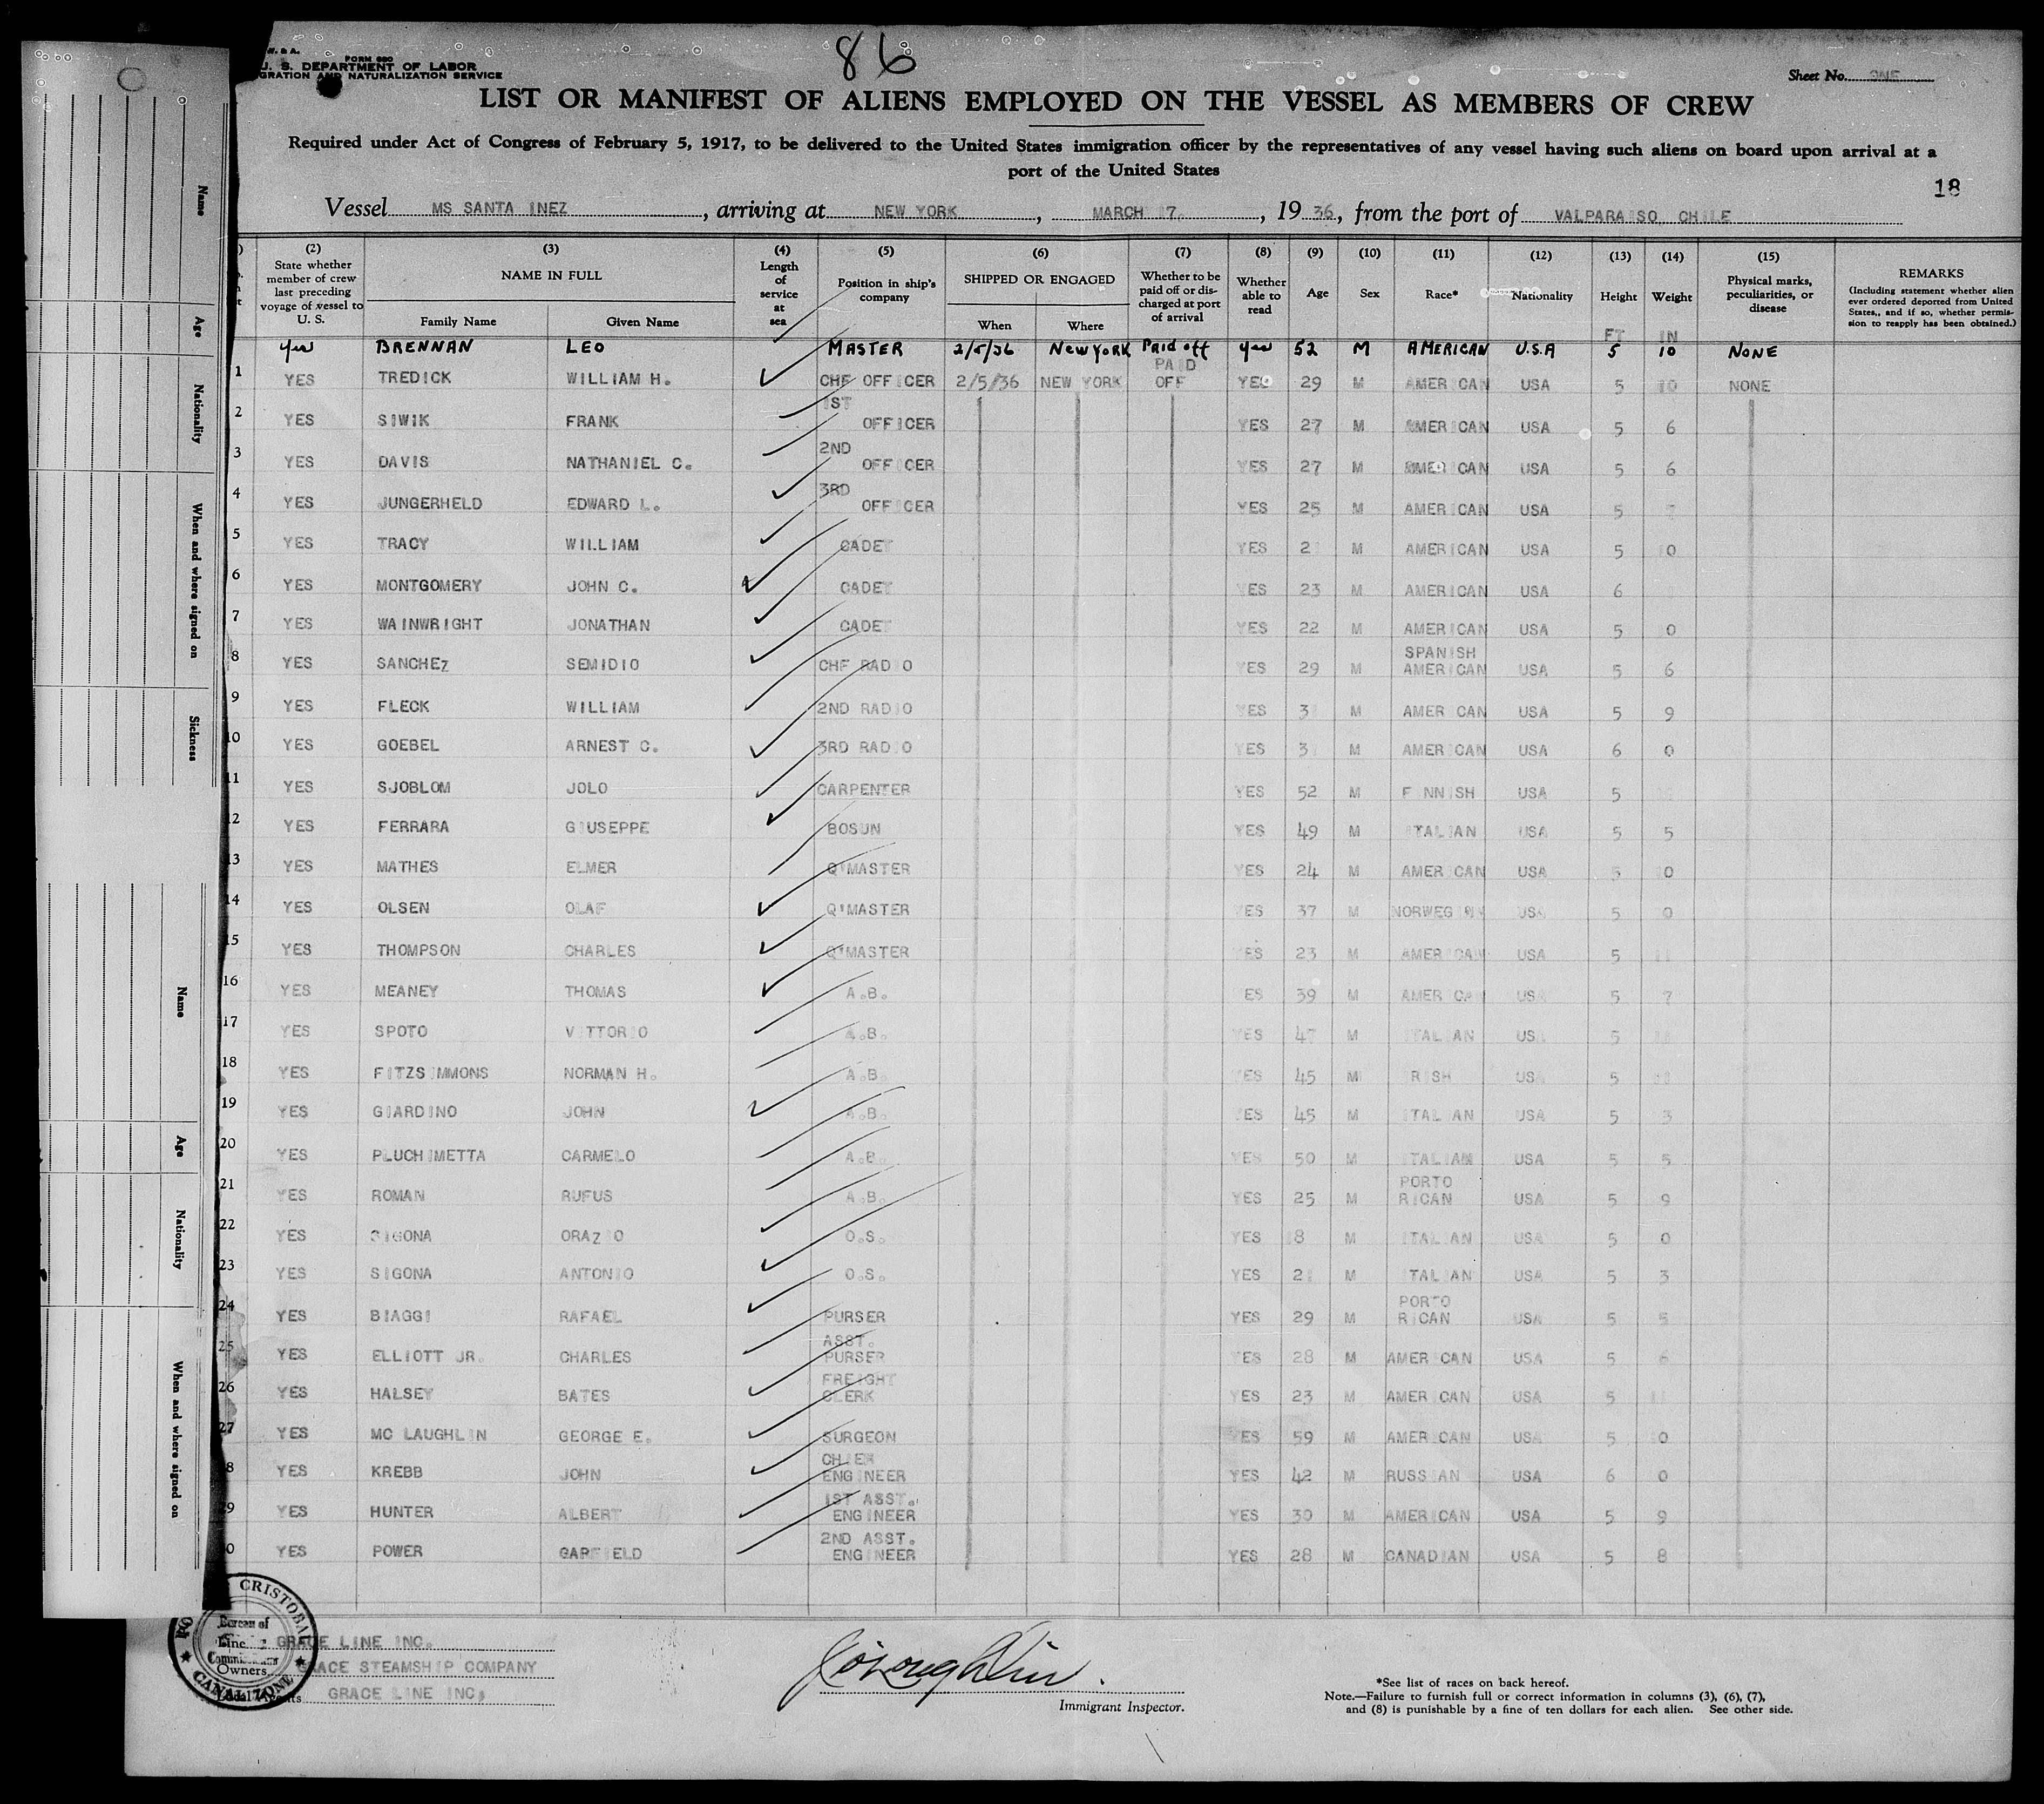 86
W. & A.
FORM 680
U. S. DEPARTMENT OF LABOR
GRATION AND NATURALIZATION SERVICE
Sheet No. ONE
LIST OR MANIFEST OF ALIENS EMPLOYED ON THE VESSEL AS MEMBERS OF CREW
Required under Act of Congress of February 5, 1917, to be delivered to the United States immigration officer by the representatives of any vessel having such aliens on board upon arrival at a
port of the United States
18
Vessel MS SANTA INEZ, arriving at NEW YORK, MARCH 17, 1936, from the port of VALPARAISO, CHILE
(2) (3) (4) (5) (6) (7) (8) (9) (10) (11) (12) (13) (14) (15)
State whether member of crew last preceding voyage of vessel to U. S.
NAME IN FULL
Family Name Given Name
Length of service at sea
Position in ship's company
SHIPPED OR ENGAGED
When Where
Whether to be paid off or discharged at port of arrival
Whether able to read
Age Sex Race* Nationality Height Weight
Physical marks, peculiarities, or disease
REMARKS
(Including statement whether alien ever ordered deported from United States, and if so, whether permission to reapply has been obtained.)
FT IN
yes BRENNAN LEO MASTER 2/5/36 New York Paid off yes 52 M AMERICAN U.S.A 5 10 NONE
1 YES TREDICK WILLIAM H. CHF OFFICER 2/5/36 NEW YORK PAID OFF YES 29 M AMERICAN USA 5 10 NONE
2 YES SIWIK FRANK 1ST OFFICER YES 27 M AMERICAN USA 5 6
3 YES DAVIS NATHANIEL C. 2ND OFFICER YES 27 M AMERICAN USA 5 6
4 YES JUNGERHELD EDWARD L. 3RD OFFICER YES 25 M AMERICAN USA 5 7
5 YES TRACY WILLIAM CADET YES 21 M AMERICAN USA 5 10
6 YES MONTGOMERY JOHN C. CADET YES 23 M AMERICAN USA 6
7 YES WAINWRIGHT JONATHAN CADET YES 22 M AMERICAN USA 5 0
8 YES SANCHEZ SEMIDIO CHF RADIO YES 29 M SPANISH AMERICAN USA 5 6
9 YES FLECK WILLIAM 2ND RADIO YES M AMERICAN USA 5 9
10 YES GOEBEL ARNEST C. 3RD RADIO YES M AMERICAN USA 6 0
11 YES SJOBLOM JOLO CARPENTER YES 52 M FINNISH USA 5
12 YES FERRARA GIUSEPPE BOSUN YES 49 M ITALIAN USA 5 5
13 YES MATHES ELMER Q'MASTER YES 24 M AMERICAN USA 5 10
14 YES OLSEN OLAF Q'MASTER YES 37 M NORWEGIAN USA 5 0
15 YES THOMPSON CHARLES Q'MASTER YES 23 M AMERICAN USA 5 11
16 YES MEANEY THOMAS A.B. YES 39 M AMERICAN USA 5 7
17 YES SPOTO VITTORIO A.B. YES 47 M ITALIAN USA 5
18 YES FITZSIMMONS NORMAN H. A.B. YES 45 M IRISH USA 5
19 YES GIARDINO JOHN A.B. YES 45 M ITALIAN USA 5 3
20 YES PLUCHIMETTA CARMELO A.B. YES 50 M ITALIAN USA 5 5
21 YES ROMAN RUFUS A.B. YES 25 M PORTO RICAN USA 5 9
22 YES SIGONA ORAZIO O.S. YES 18 M ITALIAN USA 5 0
23 YES SIGONA ANTONIO O.S. YES 21 M ITALIAN USA 5 3
24 YES BIAGGI RAFAEL PURSER YES 29 M PORTO RICAN USA 5 5
25 YES ELLIOTT JR. CHARLES ASST. PURSER YES 28 M AMERICAN USA 5 6
26 YES HALSEY BATES FREIGHT CLERK YES 23 M AMERICAN USA 5 11
27 YES MC LAUGHLIN GEORGE E. SURGEON YES 59 M AMERICAN USA 5 0
8 YES KREBB JOHN CHIEF ENGINEER YES 42 M RUSSIAN USA 6 0
9 YES HUNTER ALBERT 1ST ASST. ENGINEER YES 30 M AMERICAN USA 5 9
0 YES POWER GARFIELD 2ND ASST. ENGINEER YES 28 M CANADIAN USA 5 8
Name
Age
Nationality
When and where signed on
Sickness
Name
Age
Nationality
When and where signed on
CRISTOBAL
CANAL ZONE
Bureau of
Line GRACE LINE INC.
Owners GRACE STEAMSHIP COMPANY
Local Agents GRACE LINE INC.
Immigrant Inspector.
*See list of races on back hereof.
Note.—Failure to furnish full or correct information in columns (3), (6), (7),
and (8) is punishable by a fine of ten dollars for each alien. See other side.